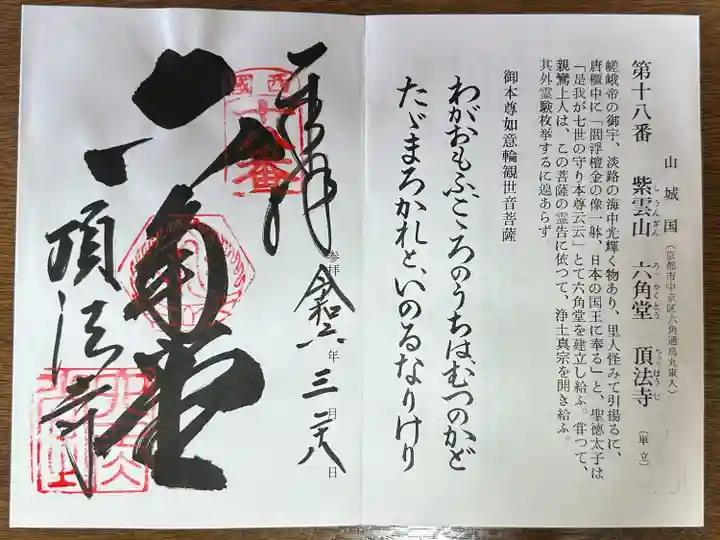 第十八番 紫雲山 六角堂 頂法寺 (単立)
しうんざん ろっかくどう ちょうほうじ
山城国 (京都市中京区六角通烏丸東入)
嵯峨帝の御宇、淡路の海中光輝く物あり、里人怪みて引揚るに、
唐櫃中に「閻浮檀金の像一躰、日本の国王に奉る」と、聖徳太子は
「是我が七世の守り本尊云云」とて六角堂を建立し給ふ。甞つて、
親鸞上人は、この菩薩の霊告に依つて、浄土真宗を開き給ふ。
其外霊験枚挙するに遑あらず
御本尊如意輪観世音菩薩
わがおもふこゝろのうちはむつのかど
たゞまろかれと、いのるなりけり
奉拝
参拝 令和六年三月二十八日
西國
十八番
六角堂
頂法寺